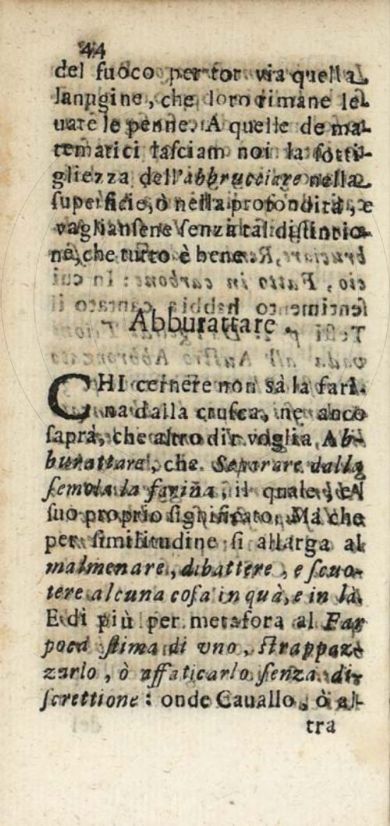 44
del fuoco per tor via quella
lanugine, che loro rimane le
uate le penne. A quelle de ma-
tematici lasciam noi la sotti-
gliezza dell'abbrucciare nella
superficie, ò nella profondità, e
vagliansene senza tal distintio-
ne, che tutto è bene.
Abburattare.
CHI cernere non sà la fari-
na dalla crusca, ne anco
saprà, che altro dir voglia Ab-
burattare, che Separare dalla
semola la farina, il quale è il
suo proprio significato. Ma che
per similitudine si allarga al
malmenare, dibattere, e scuo-
tere alcuna cosa in quà, e in là.
E di più per metafora al Far
poca stima di vno, strappaz-
zarlo, ò affaticarlo senza di-
screttione: onde Cauallo, ò al-
tra